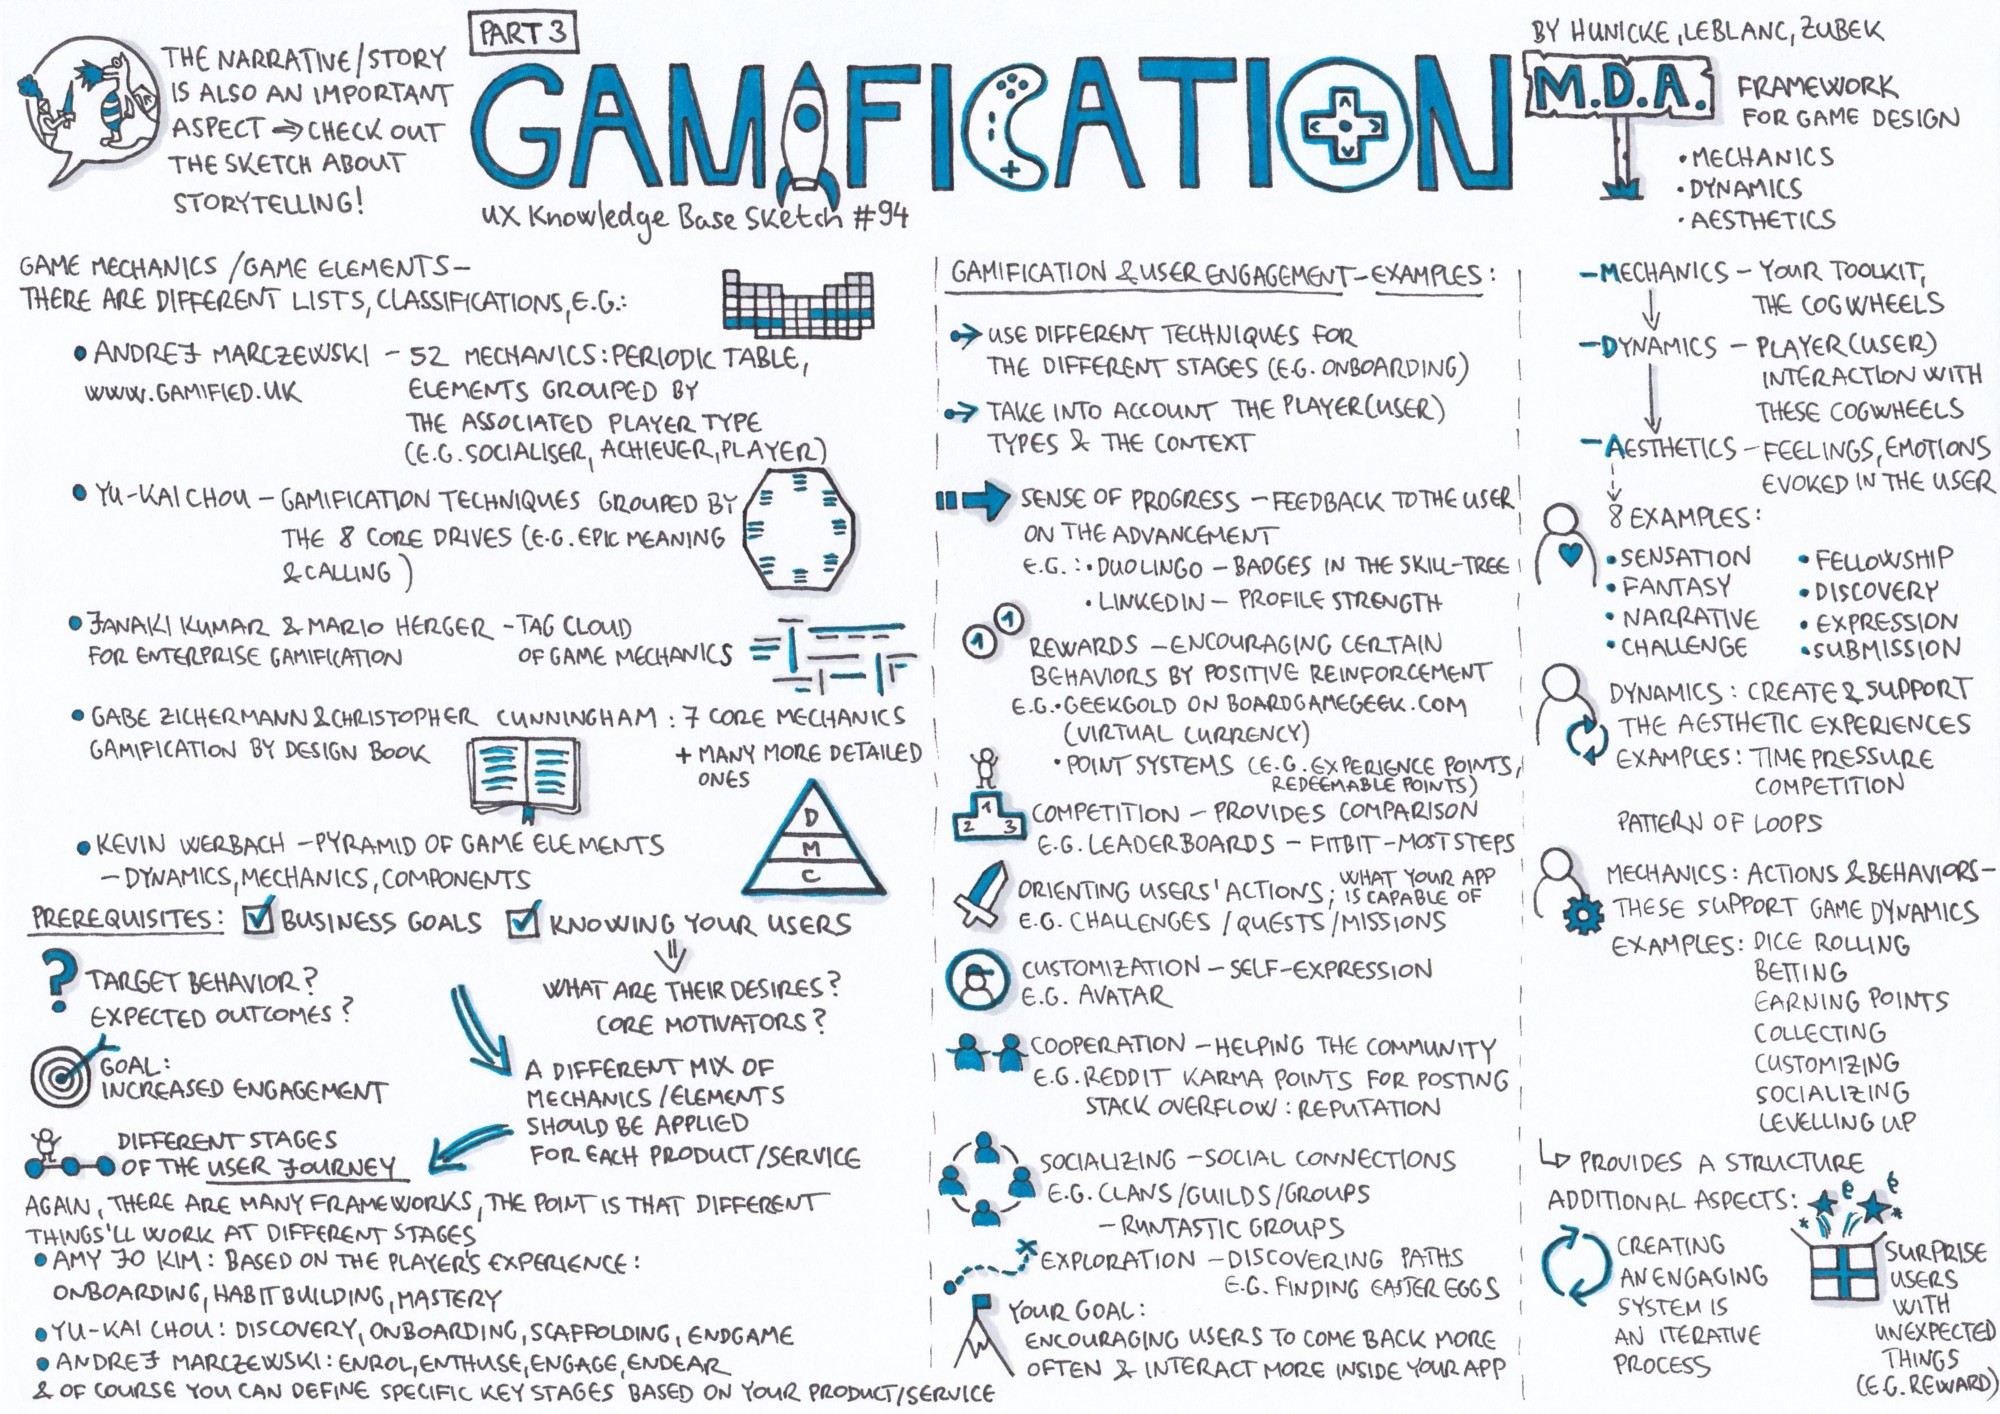 THE NARRATIVE/STORY
IS ALSO AN IMPORTANT
ASPECT ⇒ CHECK OUT
THE SKETCH ABOUT
STORYTELLING!
PART 3
GAMIFICATION
UX Knowledge Base Sketch #94
BY HUNICKE, LEBLANC, ZUBEK
M.D.A.
FRAMEWORK
FOR GAME DESIGN
• MECHANICS
• DYNAMICS
• AESTHETICS
GAME MECHANICS / GAME ELEMENTS –
THERE ARE DIFFERENT LISTS, CLASSIFICATIONS, E.G.:
• ANDREJ MARCZEWSKI – 52 MECHANICS: PERIODIC TABLE,
WWW.GAMIFIED.UK
ELEMENTS GROUPED BY
THE ASSOCIATED PLAYER TYPE
(E.G. SOCIALISER, ACHIEVER, PLAYER)
• YU-KAI CHOU – GAMIFICATION TECHNIQUES GROUPED BY
THE 8 CORE DRIVES (E.G. EPIC MEANING
& CALLING)
• JANAKI KUMAR & MARIO HERGER – TAG CLOUD
FOR ENTERPRISE GAMIFICATION
OF GAME MECHANICS
• GABE ZICHERMANN & CHRISTOPHER CUNNINGHAM: 7 CORE MECHANICS
GAMIFICATION BY DESIGN BOOK
+ MANY MORE DETAILED
ONES
• KEVIN WERBACH – PYRAMID OF GAME ELEMENTS
– DYNAMICS, MECHANICS, COMPONENTS
D
M
C
PREREQUISITES: BUSINESS GOALS KNOWING YOUR USERS
? TARGET BEHAVIOR?
EXPECTED OUTCOMES?
WHAT ARE THEIR DESIRES?
CORE MOTIVATORS?
GOAL:
INCREASED ENGAGEMENT
A DIFFERENT MIX OF
MECHANICS/ELEMENTS
SHOULD BE APPLIED
FOR EACH PRODUCT/SERVICE
DIFFERENT STAGES
OF THE USER JOURNEY
AGAIN, THERE ARE MANY FRAMEWORKS, THE POINT IS THAT DIFFERENT
THINGS'LL WORK AT DIFFERENT STAGES
• AMY JO KIM: BASED ON THE PLAYER'S EXPERIENCE:
ONBOARDING, HABIT BUILDING, MASTERY
• YU-KAI CHOU: DISCOVERY, ONBOARDING, SCAFFOLDING, ENDGAME
• ANDREJ MARCZEWSKI: ENROL, ENTHUSE, ENGAGE, ENDEAR
& OF COURSE YOU CAN DEFINE SPECIFIC KEY STAGES BASED ON YOUR PRODUCT/SERVICE
GAMIFICATION & USER ENGAGEMENT – EXAMPLES:
USE DIFFERENT TECHNIQUES FOR
THE DIFFERENT STAGES (E.G. ONBOARDING)
TAKE INTO ACCOUNT THE PLAYER (USER)
TYPES & THE CONTEXT
SENSE OF PROGRESS – FEEDBACK TO THE USER
ON THE ADVANCEMENT
E.G.: • DUOLINGO – BADGES IN THE SKILL-TREE
• LINKEDIN – PROFILE STRENGTH
1 1
REWARDS – ENCOURAGING CERTAIN
BEHAVIORS BY POSITIVE REINFORCEMENT
E.G. • GEEKGOLD ON BOARDGAMEGEEK.COM
(VIRTUAL CURRENCY)
• POINT SYSTEMS (E.G. EXPERIENCE POINTS,
REDEEMABLE POINTS)
1
2 3
COMPETITION – PROVIDES COMPARISON
E.G. LEADERBOARDS – FITBIT – MOST STEPS
ORIENTING USERS' ACTIONS; WHAT YOUR APP
IS CAPABLE OF
E.G. CHALLENGES / QUESTS / MISSIONS
CUSTOMIZATION – SELF-EXPRESSION
E.G. AVATAR
COOPERATION – HELPING THE COMMUNITY
E.G. REDDIT KARMA POINTS FOR POSTING
STACK OVERFLOW: REPUTATION
SOCIALIZING – SOCIAL CONNECTIONS
E.G. CLANS/GUILDS/GROUPS
– RUNTASTIC GROUPS
EXPLORATION – DISCOVERING PATHS
E.G. FINDING EASTER EGGS
YOUR GOAL:
ENCOURAGING USERS TO COME BACK MORE
OFTEN & INTERACT MORE INSIDE YOUR APP
– MECHANICS – YOUR TOOLKIT,
THE COGWHEELS
– DYNAMICS – PLAYER (USER)
INTERACTION WITH
THESE COGWHEELS
– AESTHETICS – FEELINGS, EMOTIONS
EVOKED IN THE USER
8 EXAMPLES:
• SENSATION
• FANTASY
• NARRATIVE
• CHALLENGE
• FELLOWSHIP
• DISCOVERY
• EXPRESSION
• SUBMISSION
DYNAMICS: CREATE & SUPPORT
THE AESTHETIC EXPERIENCES
EXAMPLES: TIME PRESSURE
COMPETITION
PATTERN OF LOOPS
MECHANICS: ACTIONS & BEHAVIORS –
THESE SUPPORT GAME DYNAMICS
EXAMPLES: DICE ROLLING
BETTING
EARNING POINTS
COLLECTING
CUSTOMIZING
SOCIALIZING
LEVELLING UP
↳ PROVIDES A STRUCTURE
ADDITIONAL ASPECTS:
CREATING
AN ENGAGING
SYSTEM IS
AN ITERATIVE
PROCESS
SURPRISE
USERS
WITH
UNEXPECTED
THINGS
(E.G. REWARD)